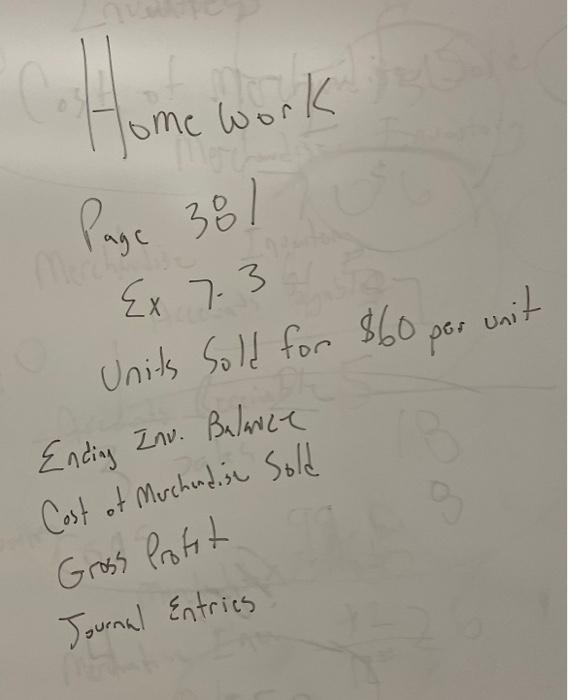 Home work
Page 381
Ex 7.3
Units Sold for $60 per unit
Ending Inv. Balance
Cost of Merchandise Sold
Gross Profit
Journal Entries